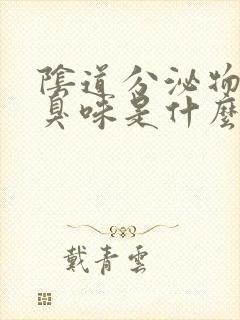 陰道分泌物
臭味是什麼
戴青雲